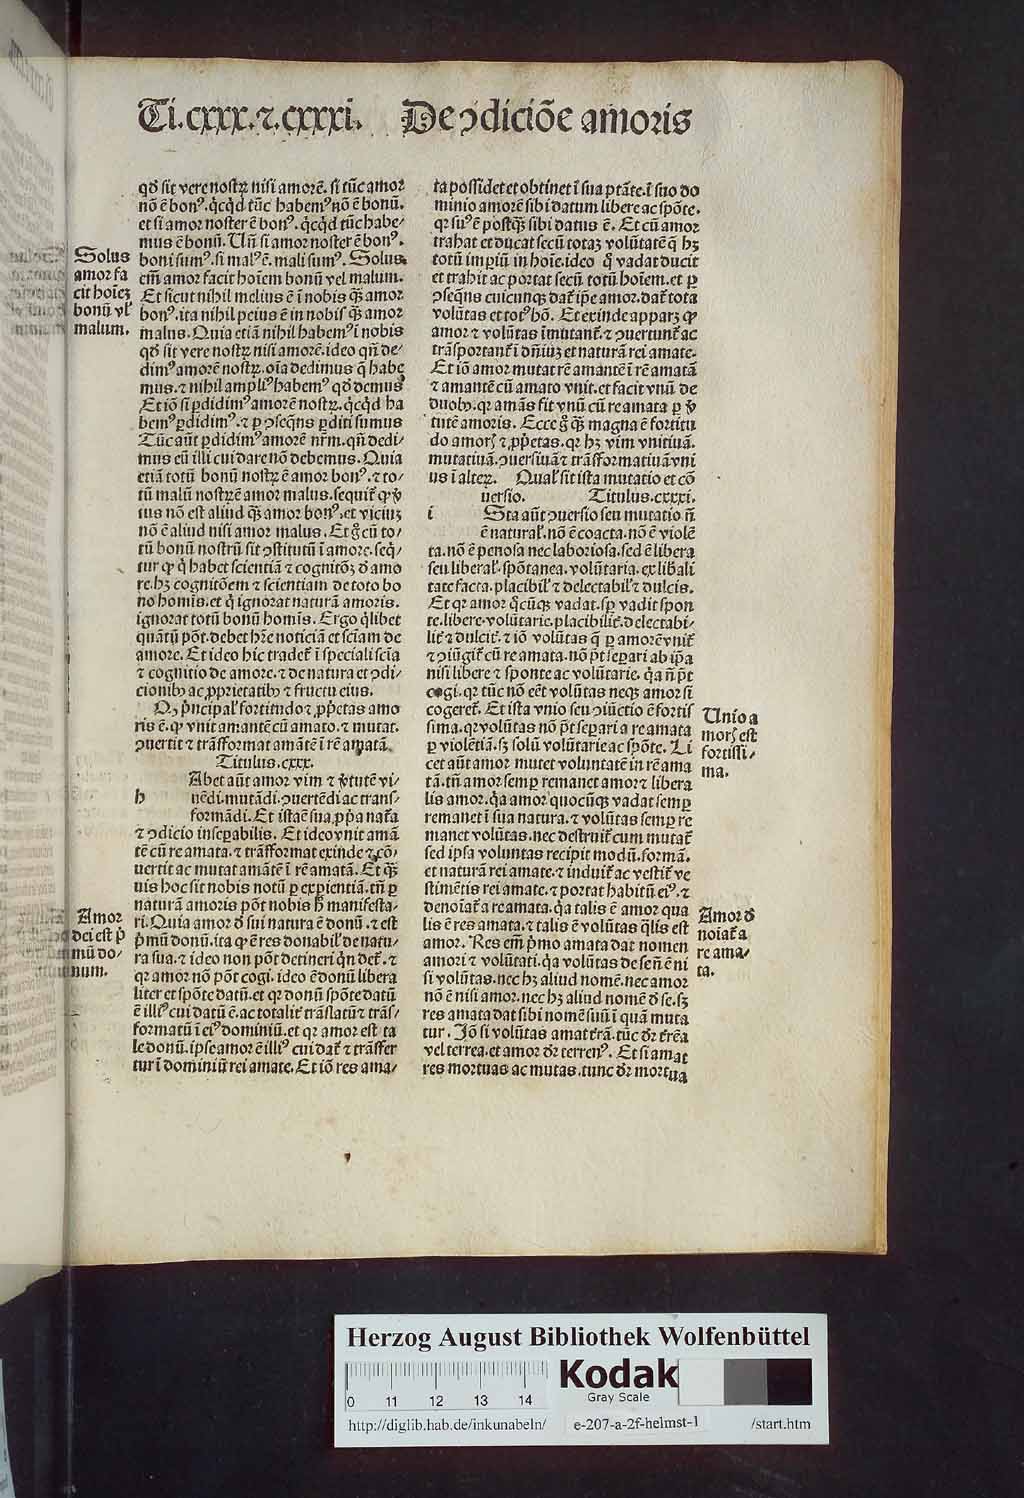 Ti.cxxx.⁊.cxxxi. De ↄdiciōe amoris
qđ sit vere nostꝝ nisi amorē. si tūc amor
nō ē bonꝰ. q̇cq̇d tūc habemꝰ nō ē bonū.
et si amor noster ē bonꝰ. q̇cq̇d tūc habe/
mus ē bonū. Uñ si amor noster ē bonꝰ.
boni sumꝰ. si malꝰ ē. mali sumꝰ. Solus
em̄ amor facit hoīem bonū vel malum.
Et sicut nihil melius ē ī nobis q̄ꝫ amor
bonꝰ. ita nihil peius ē in nobis q̄ꝫ amor
malus. Quia etiā nihil habemꝰ ī nobis
qđ sit vere nostꝝ nisi amorē. ideo qñ de/
dimꝰ amorē nostꝝ. oīa dedimus q̄ habe
mus. ⁊ nihil ampliꝰ habemꝰ qđ demus
Et iō si ꝑdidimꝰ amorē nostꝝ. q̇cq̇d ha
bemꝰ ꝑdidimꝰ. ⁊ ꝑ ↄseq̄ns ꝑditi sumus
Tūc aūt ꝑdidimꝰ amorē nr̄m. qñ dedi/
mus eū illi cui dare nō debemus. Quia
etiā totū bonū nostꝝ ē amor bonꝰ. ⁊ to/
tū malū nostꝝ ē amor malus. sequit̄ ꝙ ꝟ
tus nō est aliud q̄ꝫ amor bonꝰ. et viciuꝫ
nō ē aliud nisi amor malus. Et g̊ cū to/
tū bonū nostrū sit ↄstitutū ī amore. seq̄/
tur ꝙ q̇ habet scientiā ⁊ cognitōꝫ đ amo
re. hꝫ cognitōem ⁊ scientiam de toto bo
no homīs. et q̇ ignorat naturā amoris.
ignorat totū bonū homīs. Ergo q̇libet
quātū pōt. debet hr̄e noticiā et sciam de
amore. Et ideo hic tradet̄ ī speciali sciā
⁊ cognitio de amore. ⁊ de natura et ↄdi/
cionibꝫ ac ꝓprietatibꝫ ⁊ fructu eius.
Qꝫ p̄ncipal̄ fortitudo ⁊ ꝓp̄etas amo
ris ē. ꝙ vnit amantē cū amato. ⁊ mutat.
ↄuertit ⁊ trāsformat amātē ī rē amatā.
Titulus.cxxx.
h Abet aūt amor vim ⁊ ꝟtutē vi/
uēdi. mutādi. ↄuertēdi ac trans/
formādi. Et ista ē sua ꝓp̄a nat̄a
⁊ ↄdicio insepabilis. Et ideo vnit amā
tē cū re amata. ⁊ trāsformat exinde ⁊ cō/
uertit ac mutat amātē ī rē amatā. Et q̄ꝫ
uis hoc sit nobis notū ꝑ expientiā. tn̄ ꝑ
naturā amoris pōt nobis h̄ manifesta/
ri. Quia amor đ sui natura ē donū. ⁊ est
p̄mū donū. ita ꝙ ē res donabil̄ de natu/
ra sua. ⁊ ideo non pōt detineri q̇n det̄. ⁊
qr amor nō pōt cogi. ideo ē donū libera
liter et spōte datū. et qr donū spōte datū
ē illiꝰ cui datū ē. ac totalit̄ trāslatū ⁊ trās/
formatū ī eiꝰ dominiū. et qr amor est ta
le donū. ipse amor ē illiꝰ cui dat̄ ⁊ trāsfer
tur ī dominiū rei amate. Et iō res ama/
Solus
amor fa
cit hoīeꝫ
bonū vl̄
malum.
Amor
dei est p̄
mū do/
num.
ta possidet et obtinet ī sua ptāte. ī suo do
minio amorē sibi datum libere ac spōte.
qr suꝰ ē postq̄ꝫ sibi datus ē. Et cū amor
trahat et ducat secū totaꝫ volūtatē q̄ hꝫ
totū impiū in hoīe. ideo q̊ vadat ducit
et trahit ac portat secū totū hoīem. et ꝑ
ↄseq̄ns cuicunqꝫ dat̄ ip̄e amor. dat̄ tota
volūtas et totꝰ hō. Et exinde apparꝫ ꝙ
amor ⁊ volūtas īmutant̄. ⁊ ↄuertunt̄ ac
trāsportant̄ ī dn̄iuꝫ et naturā rei amate.
Et iō amor mutat rē amantē ī rē amatā
⁊ amantē cū amato vnit. et facit vnū de
duobꝫ. qr amās fit vnū cū re amata ꝑ ꝟ
tutē amoris. Ecce g̊ q̄ꝫ magna ē fortitu
do amorꝭ ⁊ ꝓp̄etas. qr hꝫ vim vnitiuā.
mutatiuā. ↄuersiuā ⁊ trāsformatiuā vni
us ī alteꝝ. Qual̄ sit ista mutatio et cō
uersio. Titulus.cxxxi.
i Sta aūt ↄuersio seu mutatio ñ
ē natural̄. nō ē coacta. nō ē violē
ta. nō ē penosa nec laboriosa. sed ē libera
seu liberal̄. spōtanea. volūtaria. ex liƀali
tate facta. placibil̄ ⁊ delectabil̄ ⁊ dulcis.
Et qr amor q̊cūqꝫ vadat. sꝑ vadit spon
te. libere. volūtarie. placibilit̄. delectabi/
lit̄ ⁊ dulcit̄. ⁊ iō volūtas q̄ ꝑ amorē vnit̄
⁊ ↄiūgit̄ cū re amata. nō pōt separi ab ip̄a
nisi libere ⁊ sponte ac volūtarie. q̇a ñ pōt
cogi. qr tūc nō eēt volūtas neqꝫ amor si
cogeret̄. Et ista vnio seu ↄiūctio ē fortis
sima. qr volūtas nō pōt separi a re amata
ꝑ violētiā. sꝫ solū volūtarie ac spōte. Li
cet aūt amor mutet voluntatē in rē ama
tā. tn̄ amor semꝑ remanet amor ⁊ libera
lis amor. q̇a amor quocūqꝫ vadat semꝑ
remanet ī sua natura. ⁊ volūtas semꝑ re
manet volūtas. nec destruit̄ cum mutat̄
sed ipsa voluntas recipit modū. formā.
et naturā rei amate. ⁊ induit̄ ac vestit̄ ve
stimētis rei amate. ⁊ portat habitū eiꝰ. ⁊
denoīat̄ a re amata. q̇a talis ē amor qua
lis ē res amata. ⁊ talis ē volūtas q̄lis est
amor. Res em̄ p̄mo amata dat nomen
amori ⁊ volūtati. q̇a volūtas de se ñ ē ni
si volūtas. nec hꝫ aliud nomē. nec amor
nō ē nisi amor. nec hꝫ aliud nomē đ se. sꝫ
res amata dat sibi nomē suū ī quā muta
tur. Jō si volūtas amat t̄rā. tūc đr t̄rēa
vel terrea. et amor đr terrenꝰ. Et si amat
res mortuas ac mutas. tunc đr mortua
Unio a
morꝭ est
fortissi/
ma.
Amor đ
noīat̄ a
re ama/
ta.
Herzog August Bibliothek Wolfenbüttel
Kodak
Gray Scale
0 11 12 13 14
http://diglib.hab.de/inkunabeln/ e-207-a-2f-helmst-1 /start.htm